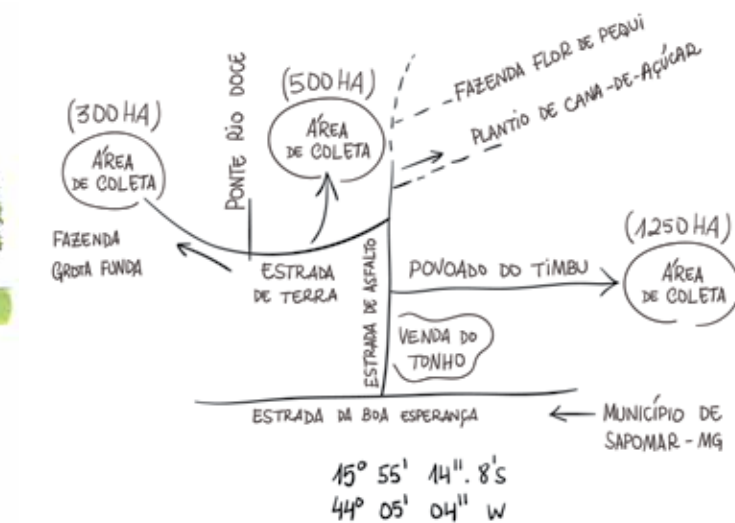 (300 HA)
ÁREA
DE COLETA
PONTE RIO DOCE
(500 HA)
ÁREA
DE COLETA
FAZENDA FLOR DE PEQUI
PLANTIO DE CANA-DE-AÇÚCAR
FAZENDA
GROTA FUNDA
ESTRADA
DE TERRA
ESTRADA DE ASFALTO
POVOADO DO TIMBU
(1250 HA)
ÁREA
DE COLETA
VENDA DO
TONHO
ESTRADA DA BOA ESPERANÇA
MUNICÍPIO DE
SAPOMAR - MG
15° 55' 14''. 8'S
44° 05' 04'' W